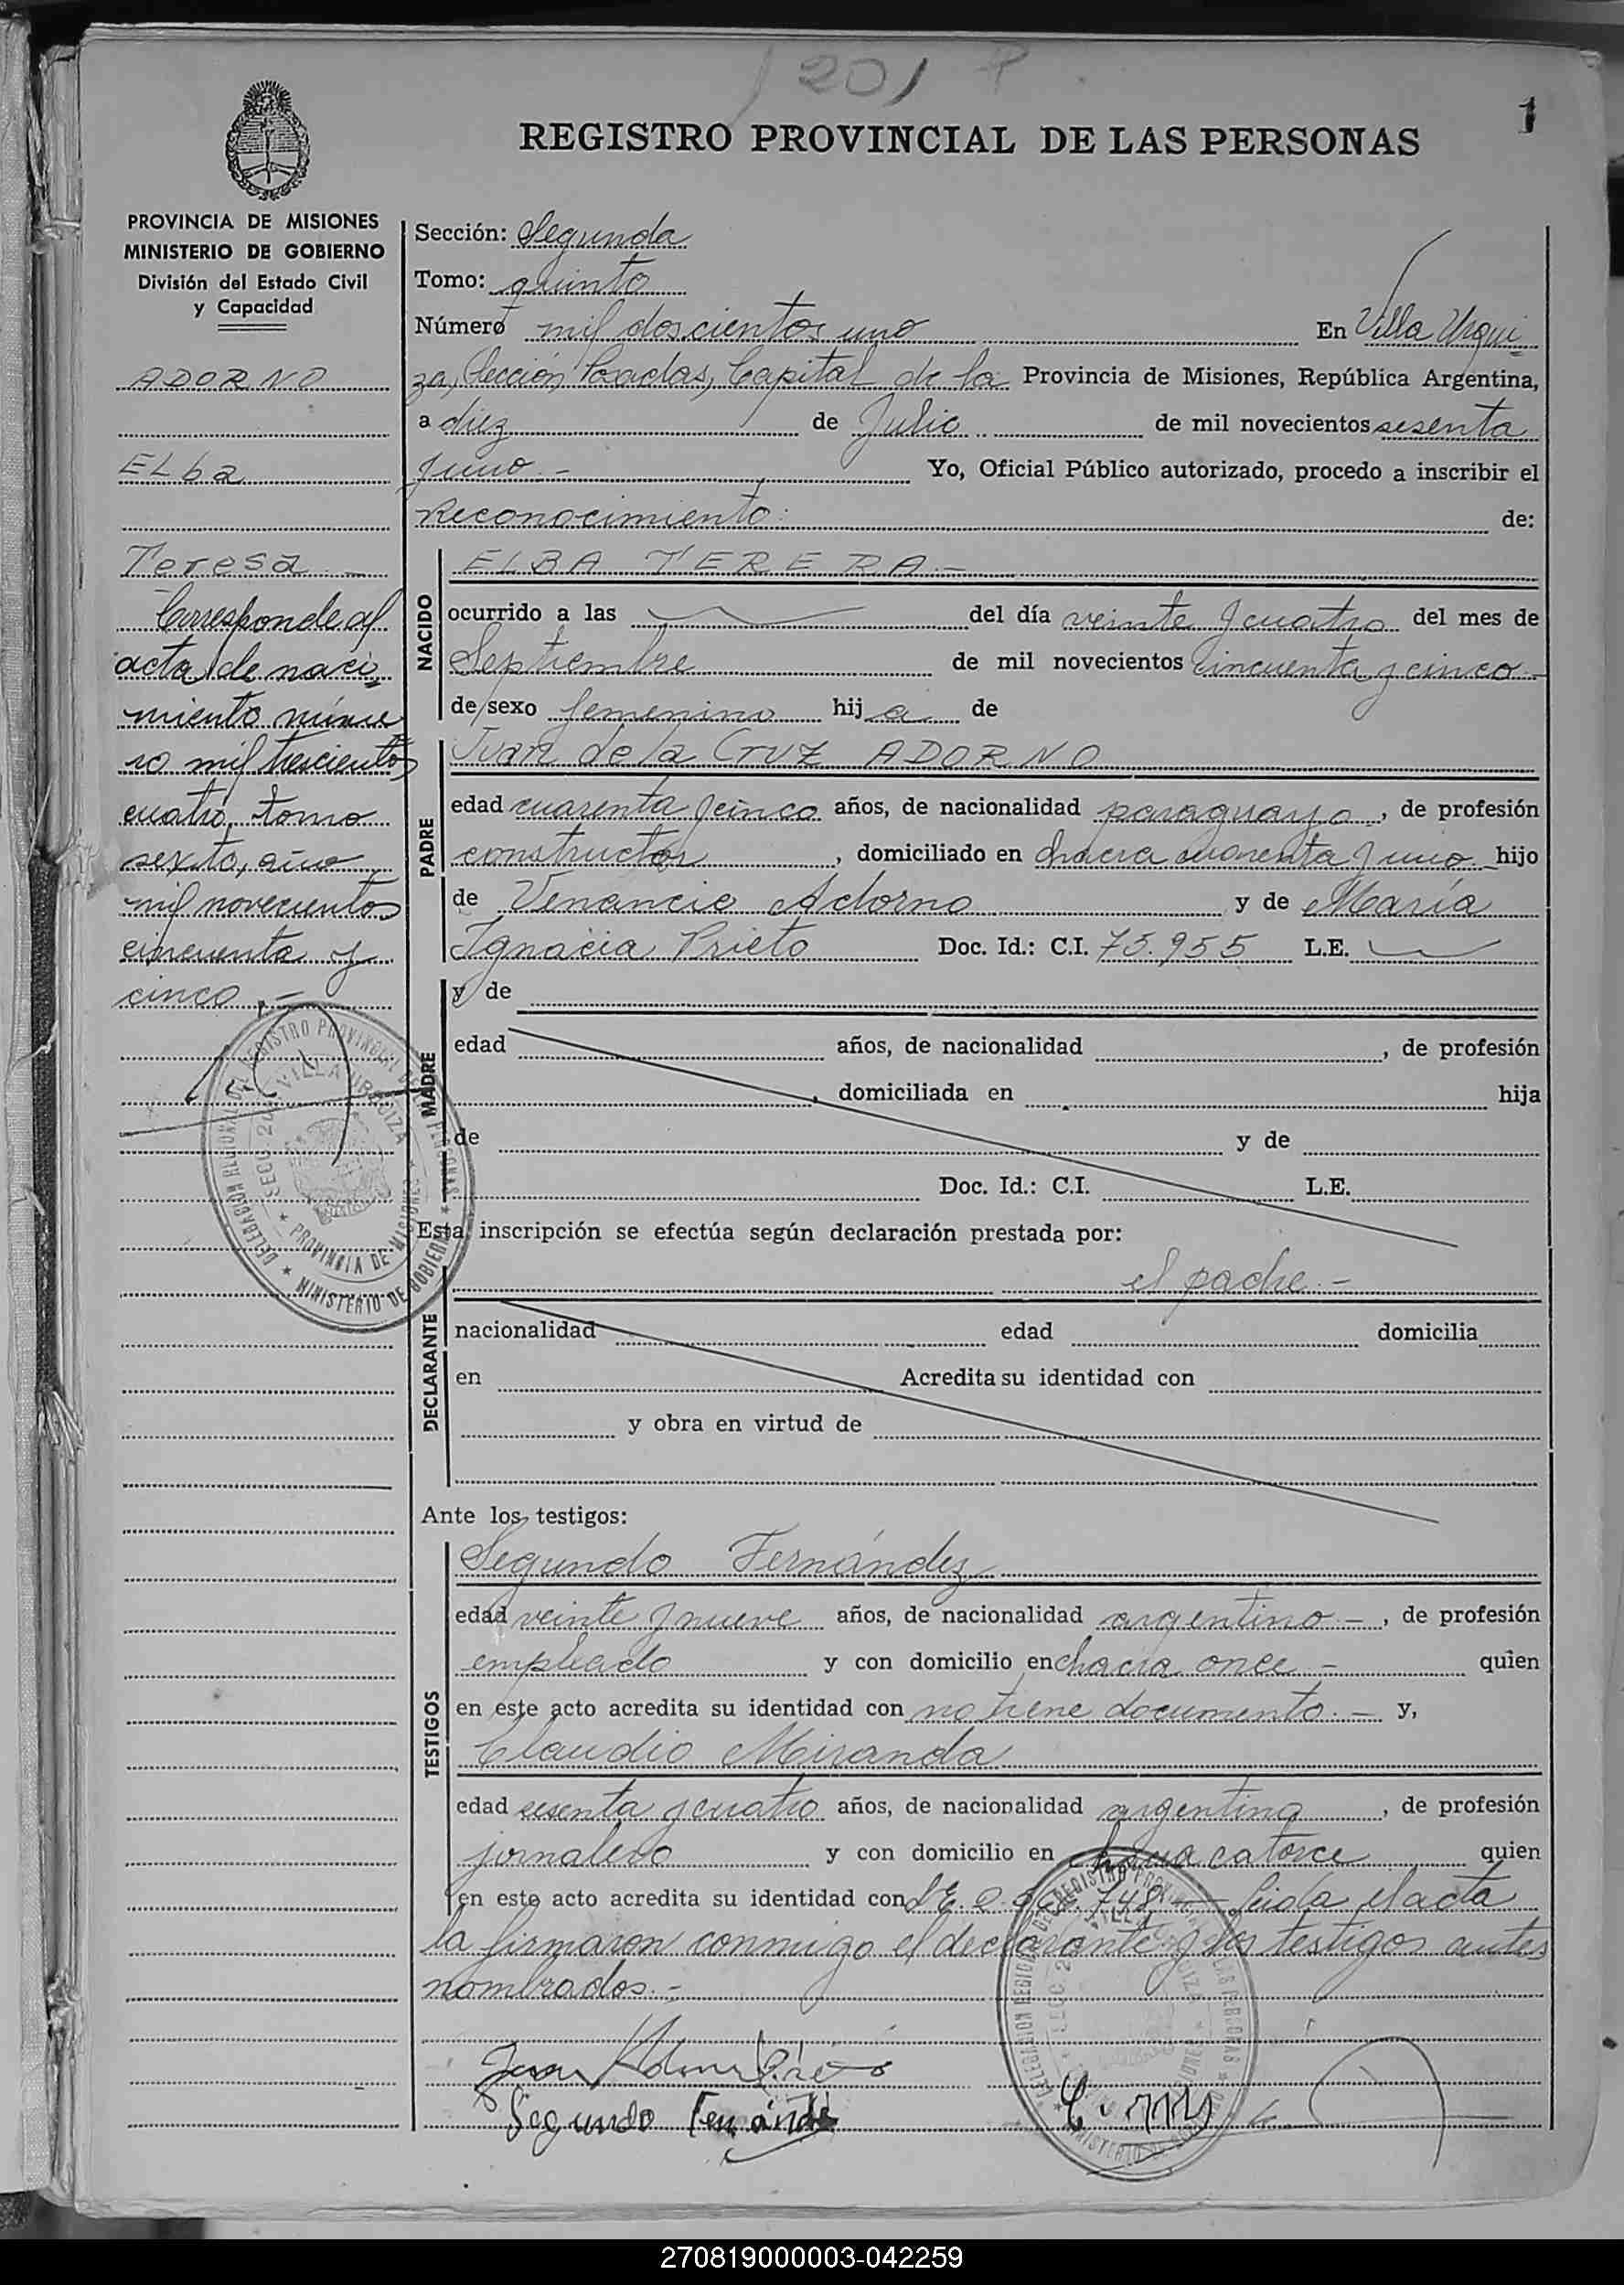 1201
1
REGISTRO PROVINCIAL DE LAS PERSONAS
PROVINCIA DE MISIONES
MINISTERIO DE GOBIERNO
División del Estado Civil
y Capacidad
ADORNO
ELba
Teresa.-
Corresponde al
acta de naci-
miento núme
ro mil trescientos
cuatro, tomo
sexto, año
mil novecientos
cincuenta y
cinco.-
Sección: Segunda
Tomo: quinto
Número mil doscientos uno En Villa Urqui-
za, Sección Posadas, Capital de la Provincia de Misiones, República Argentina,
a diez de Julio de mil novecientos sesenta
y uno.- Yo, Oficial Público autorizado, procedo a inscribir el
Reconocimiento: de:
NACIDO
ELBA TERERA.-
ocurrido a las del día veinte y cuatro del mes de
Septiembre de mil novecientos cincuenta y cinco.-
de sexo femenino hija de
PADRE
Juan de la Cruz ADORNO
edad cuarenta y cinco años, de nacionalidad paraguayo, de profesión
constructor, domiciliado en chacra cuarenta y uno.- hijo
de Venancio Adorno y de María
Ignacia Prieto Doc. Id.: C.I. 75.955 L.E.
MADRE
y de
edad años, de nacionalidad , de profesión
, domiciliada en hija
de y de
Doc. Id.: C.I. L.E.
Esta inscripción se efectúa según declaración prestada por:
el padre.-
DECLARANTE
nacionalidad edad domicilia
en Acredita su identidad con
y obra en virtud de
Ante los testigos:
TESTIGOS
Segundo Fernández
edad veinte y nueve años, de nacionalidad argentino.-, de profesión
empleado y con domicilio en chacra once.- quien
en este acto acredita su identidad con no tiene documento.- y,
Claudio Miranda
edad sesenta y cuatro años, de nacionalidad argentina, de profesión
jornalero y con domicilio en chacra catorce quien
en este acto acredita su identidad con L.E. 748.- Leida el acta
la firmaron conmigo el declarante y los testigos antes
nombrados.-
Juan Adorno Prieto
Segundo Fernández
DELEGACION REGIONAL DEL REGISTRO PROVINCIAL DE LAS PERSONAS
SECC. 2da. VILLA URQUIZA
PROVINCIA DE MISIONES
MINISTERIO DE GOBIERNO
270819000003-042259